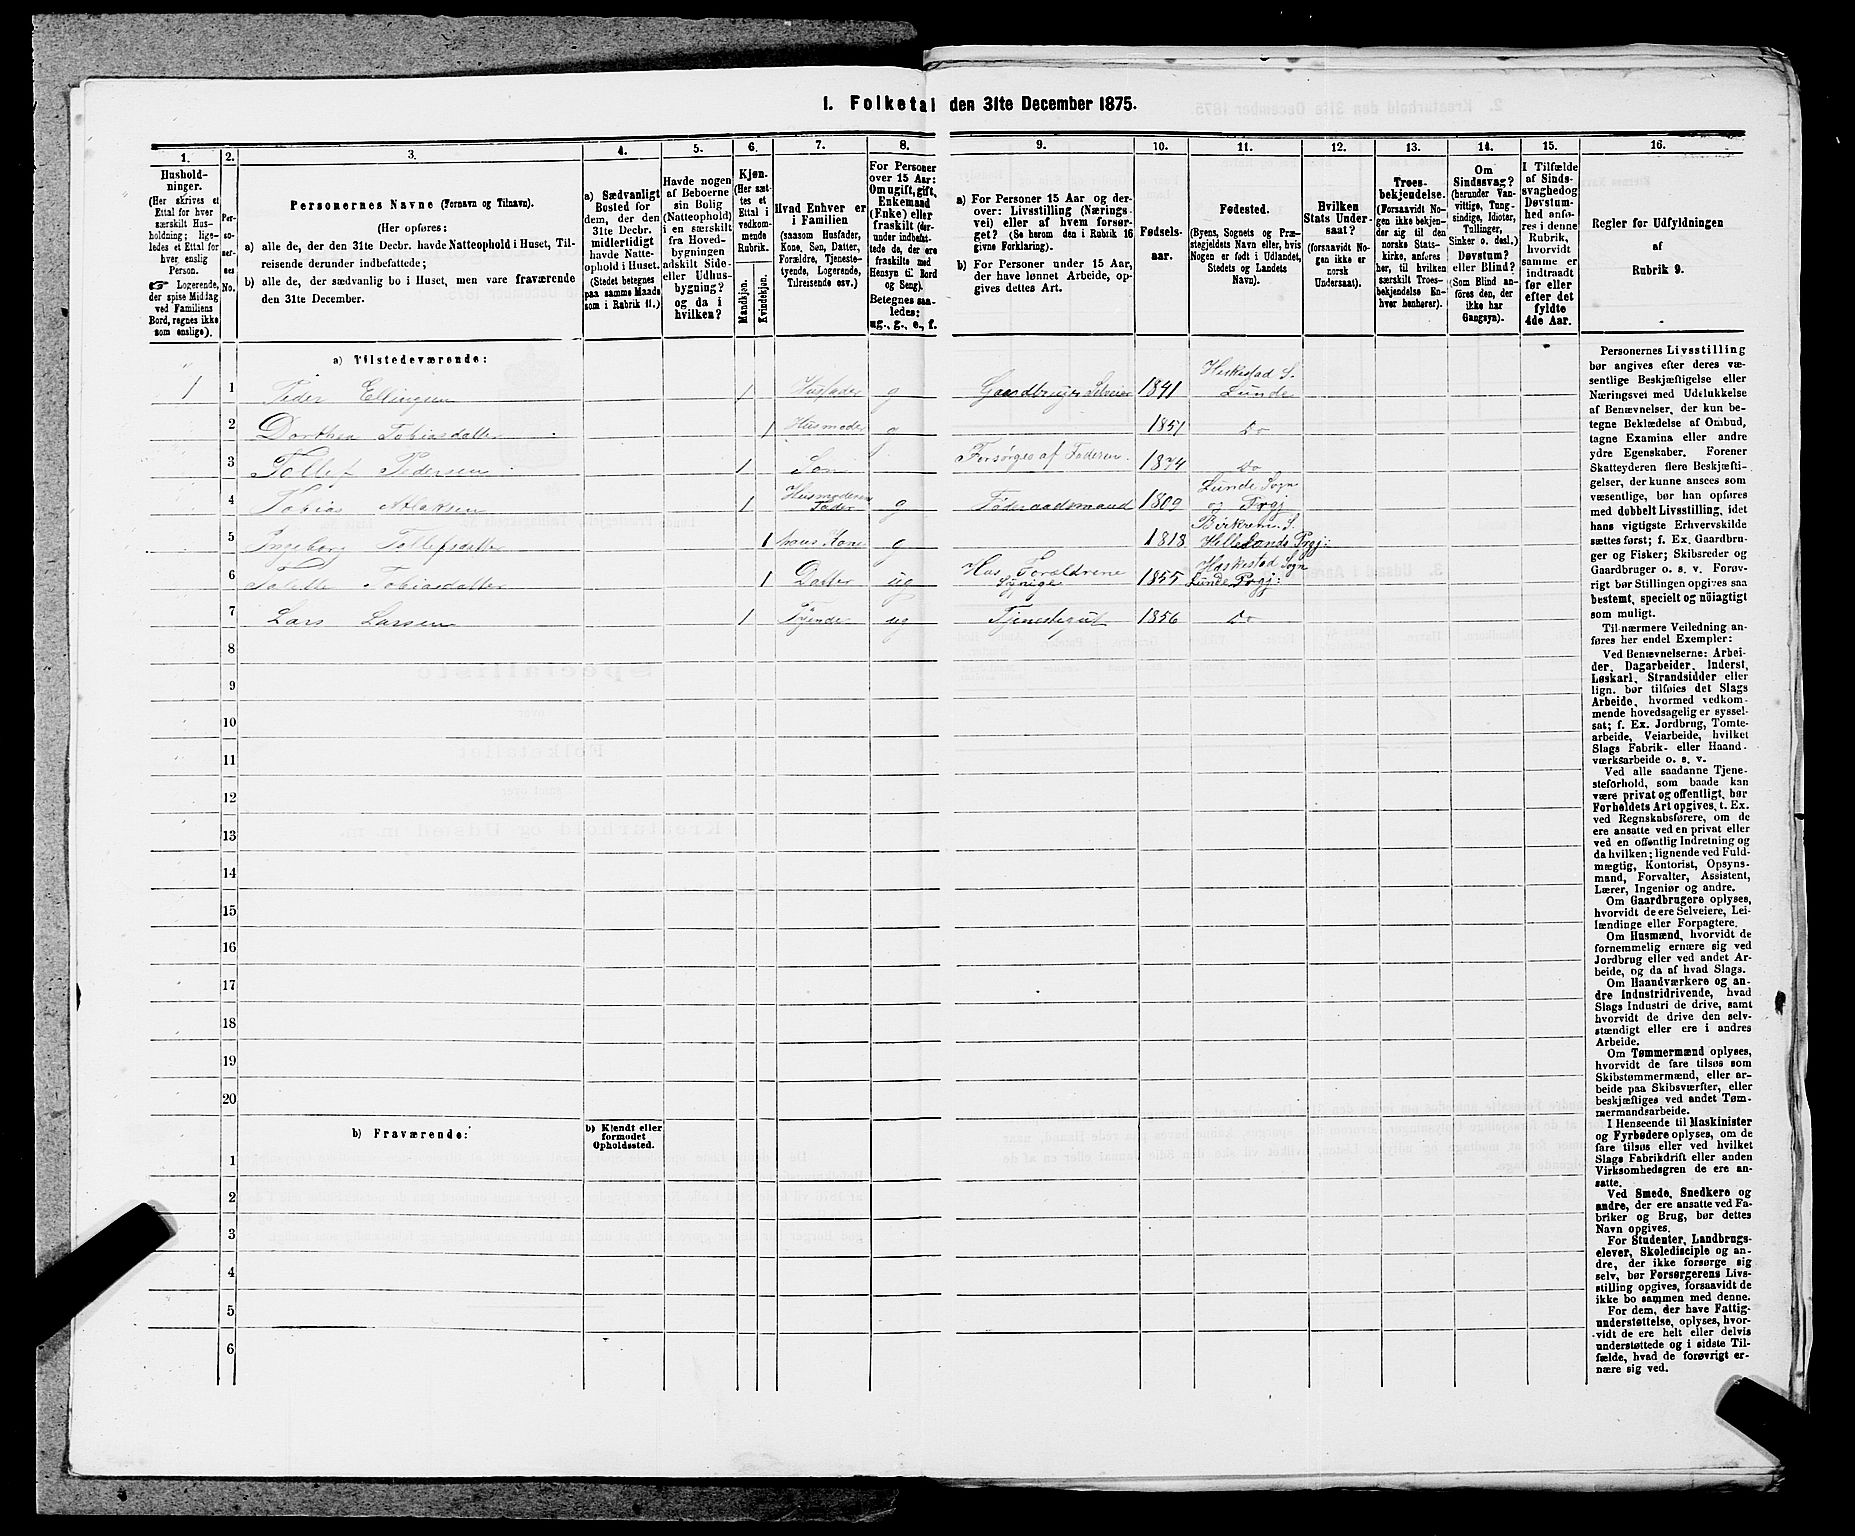 1. Folketal den 31te December 1875.
1. 2. 3. 4. 5. 6. 7. 8. 9. 10. 11. 12. 13. 14. 15. 16.
Hushold-
ninger.
(Her skrives et
Ettal for hver
særskilt Hus-
holdning; lige-
ledes et Ettal for
hver enslig
Person.
☞ Logerende,
der spise Middag
ved Familiens
Bord, regnes ikke
som enslige).
Per-
so-
ner-
nes
No.
Personernes Navne (Fornavn og Tilnavn).
(Her opføres:
a) alle de, der den 31te Decbr. havde Natteophold i Huset, Til-
reisende derunder indbefattede;
b) alle de, der sædvanlig bo i Huset, men vare fraværende
den 31te December.
a) Sædvanligt
Bosted for
dem, der den
31te Decbr.
midlertidigt
havde Natte-
ophold i Huset.
(Stedet betegnes
paa samme Maade
som i Rubrik 11.)
Havde nogen
af Beboerne
sin Bolig
(Natteophold)
i en særskilt
fra Hoved-
bygningen
adskilt Side-
eller Udhus-
bygning?
og da i
hvilken?
Kjøn.
(Her sæt-
tes et
Ettal i
vedkom-
mende
Rubrik.
Mandkjøn.
Kvindekjøn.
Hvad Enhver er
i Familien
(saasom Husfader,
Kone, Søn, Datter,
Forældre, Tjeneste-
tyende, Logerende,
Tilreisende osv.)
For Personer
over 15 Aar:
Om ugift, gift,
Enkemand
(Enke) eller
fraskilt (der-
under indbefat-
tede de, der ere
fraskilte med
Hensyn til Bord
og Seng).
Betegnes saa-
ledes:
ug., g., e., f.
a) For Personer 15 Aar og der-
over: Livsstilling (Nærings-
vei) eller af hvem forsør-
get? (Se herom den i Rubrik 16
givne Forklaring).
b) For Personer under 15 Aar,
der have lønnet Arbeide, op-
gives dettes Art.
Fødsels-
aar.
Fødested.
(Byens, Sognets og Præ-
stegjeldets Navn eller, hvis
Nogen er født i Udlandet,
Stedets og Landets
Navn).
Hvilken
Stats Under-
saat?
(forsaavidt No-
gen ikke er
norsk
Undersaat).
Troes-
bekjendelse.
(Forsaavidt No-
gen ikke bekjen-
der sig til den
norske Stats-
kirke, anføres
her, til hvilken
særskilt Troes-
bekjendelse En-
hver henhører).
Om
Sindssvag?
(herunder Van-
vittige, Tung-
sindige, Idioter,
Tullinger,
Sinker o. desl.)
Døvstum?
eller Blind?
(Som Blind an-
føres den, der
ikke har
Gangsyn).
I Tilfælde
af Sinds-
svaghed og
Døvstum-
hed anfø-
res i denne
Rubrik,
hvorvidt
samme er
indtraadt
før eller
efter det
fyldte
4de Aar.
Regler for Udfyldningen
af
Rubrik 9.
a) Tilstedeværende:
1 1 Peder Ellingsen 1 Husfader g Gaardbruger Selveier 1841 Heskestad S. Lunde
2 Dorthea Tobiasdatter 1 Husmoder g 1851 Do
3 Tollef Pedersen 1 Søn Forsørges af Faderen 1874 Do
4 Tobias Aslaksen 1 Husmoderens Fader g Føderaadsmand 1809 Lunde Sogn og Prgj
5 Ingeborg Tollefsdatter 1 hans Kone g 1818 Birkrem S. Hellelands Prgj:
6 Tobiasdatter 1 Datter ug Hus Forældrene Syerige 1855 Heskestad Sogn Lunde Prgj:
7 Lars Larsen 1 Tyende ug Tjenestegut 1856 Do
8
9
10
11
12
13
14
15
16
17
18
19
20
b) Fraværende:
b) Kjendt eller
formodet
Opholdssted.
1
2
3
4
5
6
Personernes Livsstilling
bør angives efter deres væ-
sentlige Beskjæftigelse eller
Næringsvei med Udelukkelse
af Benævnelser, der kun be-
tegne Beklædelse af Ombud,
tagne Examina eller andre
ydre Egenskaber. Forener
Skatteyderen flere Beskjæfti-
gelser, der kunne ansees som
væsentlige, bør han opføres
med dobbelt Livsstilling, idet
hans vigtigste Erhvervskilde
sættes først; f. Ex. Gaardbru-
ger og Fisker; Skibsreder og
Gaardbruger o. s. v. Forøv-
rigt bør Stillingen opgives saa
bestemt, specielt og nöiagtigt
som muligt.
Til nærmere Veiledning an-
føres her endel Exempler:
Ved Benævnelserne: Arbei-
der, Dagarbeider, Inderst,
Løskarl, Strandsidder eller
lign. bør tilføies det Slags
Arbeide, hvormed vedkom-
mende hovedsagelig er syssel-
sat; f. Ex. Jordbrug, Tomte-
arbeide, Veiarbeide, hvilket
Slags Fabrik- eller Haand-
værksarbeide o. s. v.
Ved alle saadanne Tjene-
steforhold, som baade kan
være privat og offentligt, bør
Forholdets Art opgives, t. Ex.
ved Regnskabsførere, om de
ere ansatte ved en privat eller
ved en offentlig Indretning og
da hvilken; lignende ved Fuld-
mægtig, Kontorist, Opsyns-
mand, Forvalter, Assistent,
Lærer, Ingeniør og andre.
Om Gaardbrugere oplyses,
hvorvidt de ere Selveiere, Lei-
lændinge eller Forpagtere.
Om Husmænd, hvorvidt de
fornemmelig ernære sig ved
Jordbrug eller ved andet Ar-
beide, og da af hvad Slags.
Om Haandværkere og an-
dre Industridrivende, hvad
Slags Industri de drive, samt
hvorvidt de drive den selv-
stændigt eller ere i andres
Arbeide.
Om Tømmermænd oplyses,
hvorvidt de fare tilsøs som
Skibstømmermænd, eller ar-
beide paa Skibsværfter, eller
beskjæftiges ved andet Tøm-
mermandsarbeide.
I Henseende til Maskinister
og Fyrbødere oplyses, om de
fare tilsøs eller ved hvilket
Slags Fabrikdrift eller anden
Virksomhedsgren de ere an-
satte.
Ved Smede, Snedkere og
andre, der ere ansatte ved Fa-
briker og Brug, bør dettes
Navn opgives.
For Studenter, Landbrugs-
elever, Skoledisciple og an-
dre, der ikke forsørge sig
selv, bør Forsørgerens Livs-
stilling opgives, forsaavidt de
ikke bo sammen med denne.
For dem, der have Fattig-
understøttelse, oplyses, hvor-
vidt de ere helt eller delvis
understøttede og i sidste Til-
fælde, hvad de forøvrigt er-
nære sig ved.